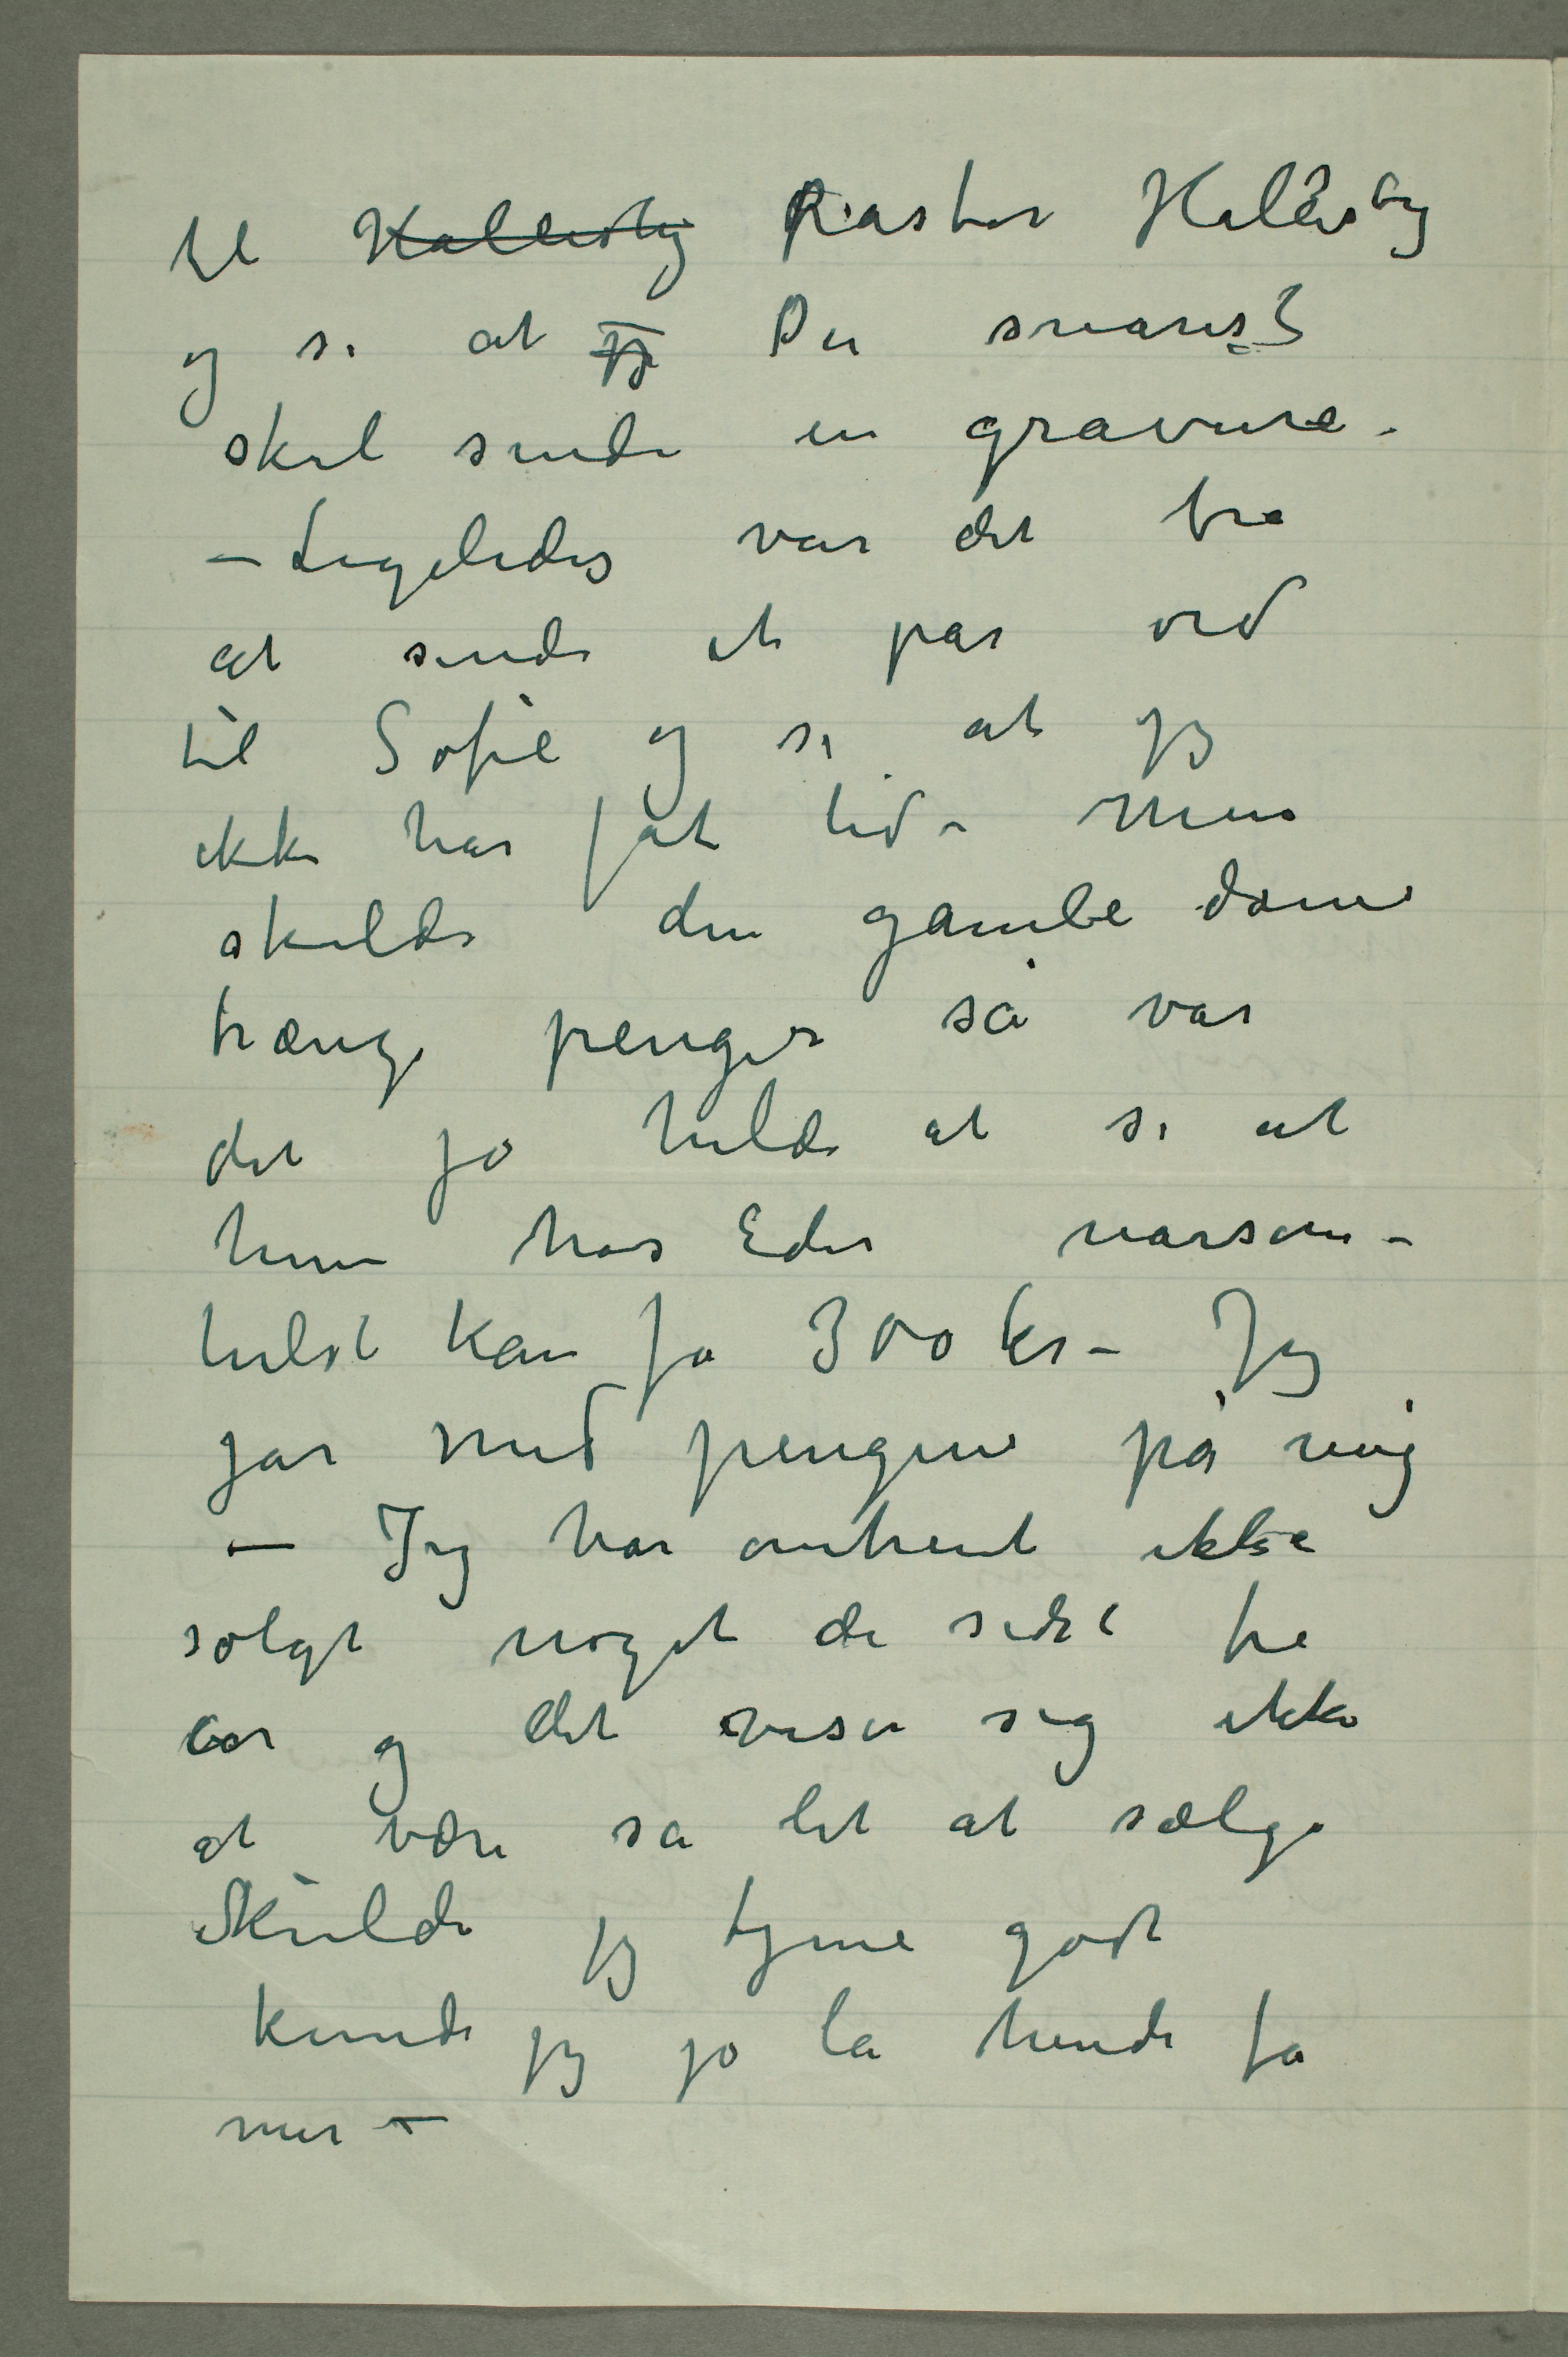 til Hallesby Pastor Hallesby
og si at jeg Du snarest
skal sende en gravure.
– Ligeledes var det bra
at sende et par ord
til Sofie og si at jeg
ikke har fåt tid – Men
skulde den gamle dame
trænge penger så var
det jo heldi at si at
hun hos Eder nårsom-
helst kan få 300 kr – Jeg
gar med pengene på mig
– Jeg har omtrent ikke
solgt noget de sidst tre
aar og det viser sig ikke
at være så let at sælge
Skulde jeg tjene godt
kunde jeg jo la hende få
mer –